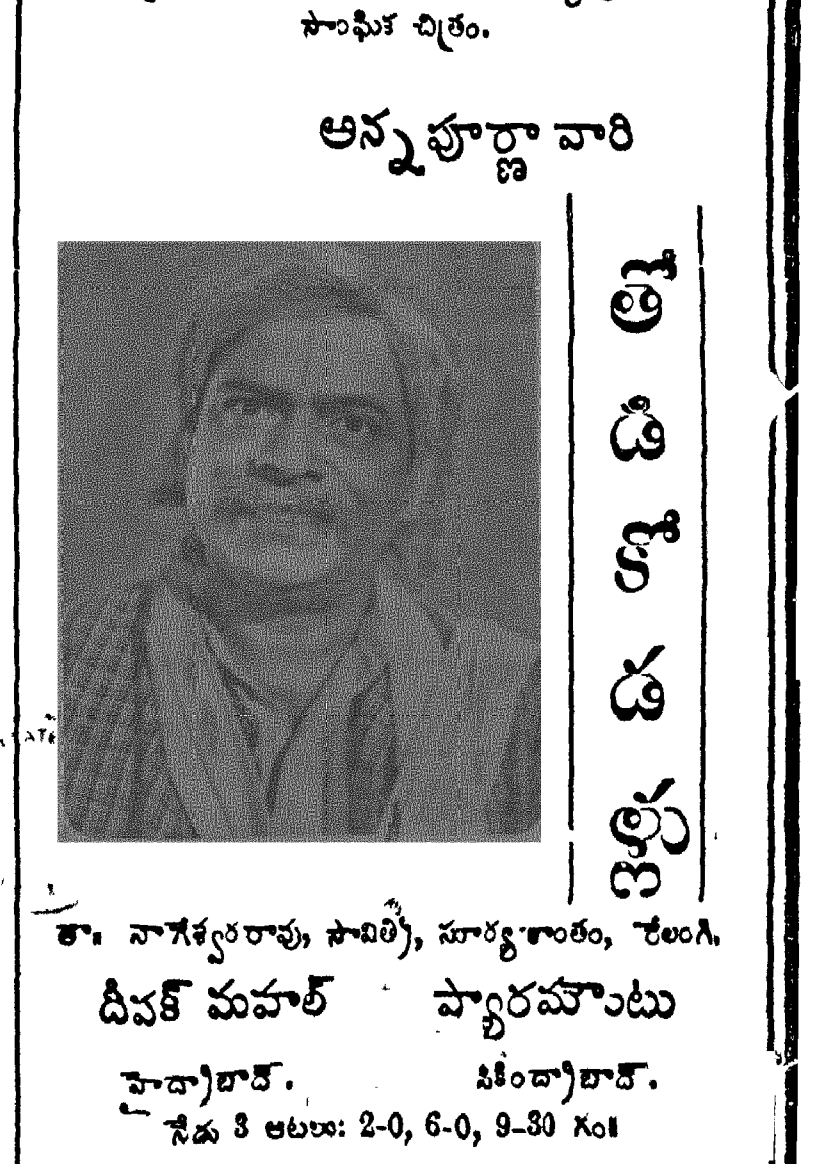 సాంఘిక చిత్రం.
అన్నపూర్ణా వారి
తోడికోడళ్ళు
తా: నాగేశ్వరరావు, సావిత్రి, సూర్యకాంతం, రేలంగి.
దీపక్ మహల్ ప్యారమౌంటు
హైద్రాబాద్. సికింద్రాబాద్.
నేడు 3 ఆటలు: 2-0, 6-0, 9-30 గం॥